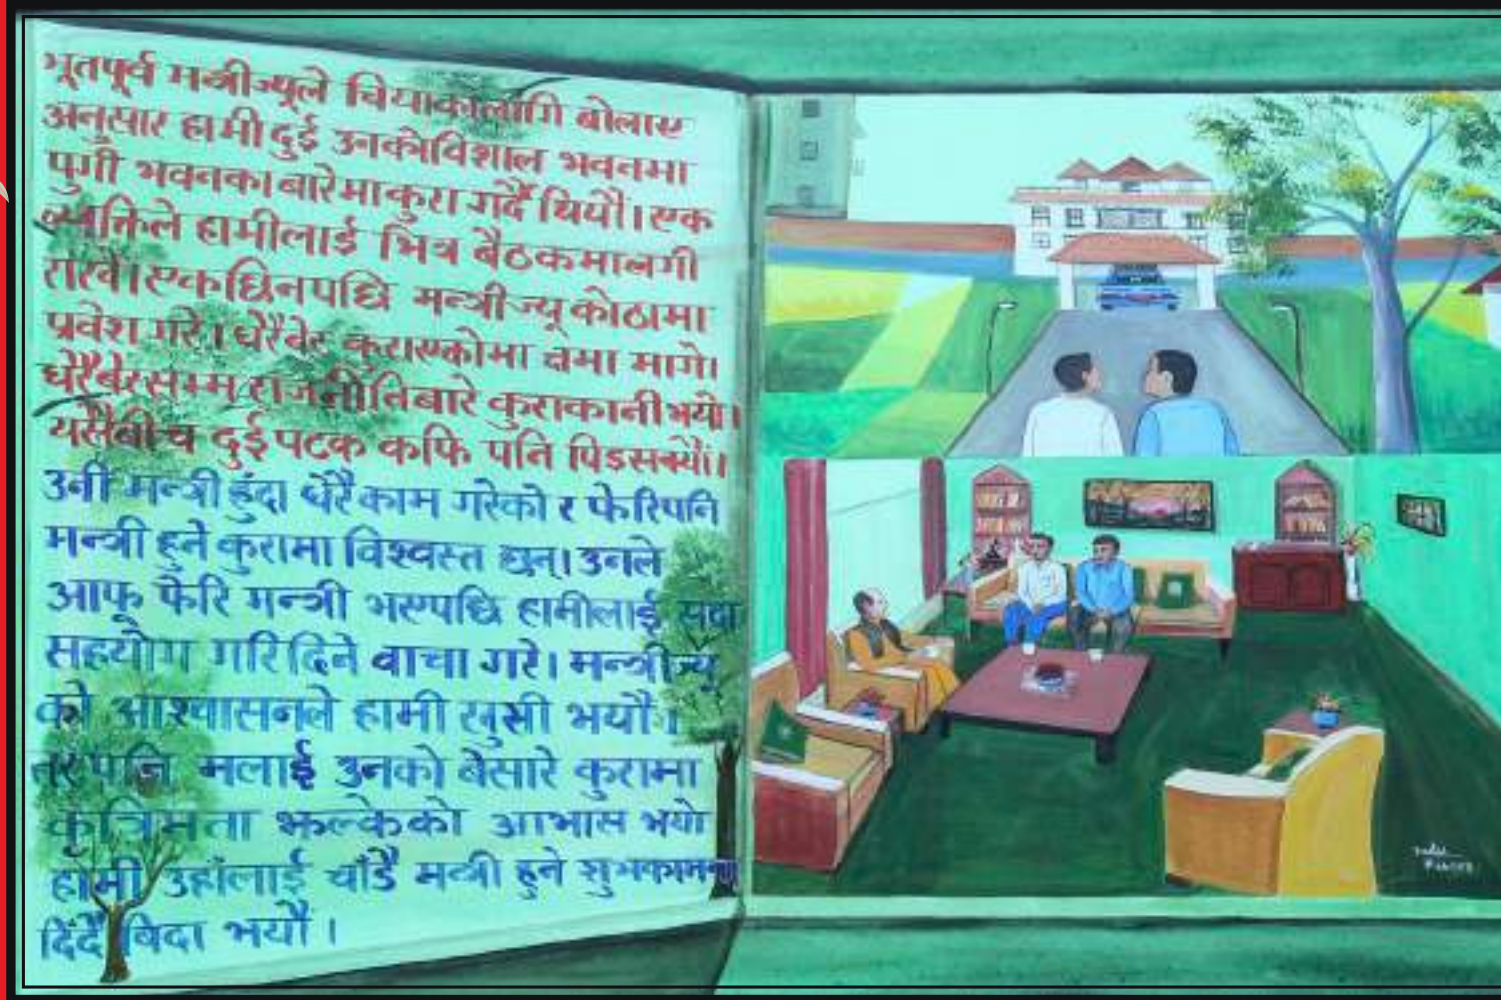 भूतपूर्व मन्त्रीज्यूले चियाकालागि बोलाए
अनुसार हामी दुई उनको विशाल भवनमा
पुगी भवनका बारेमा कुरा गर्दै थियौं। एक
व्यक्तिले हामीलाई भित्र बैठकमा लगी
राखे। एकछिनपछि मन्त्रीज्यू कोठामा
प्रवेश गरे। धेरैबेर कुराएकोमा क्षमा मागे।
धेरैबेरसम्म राजनीतिबारे कुराकानी भयो।
यसैबीच दुई पटक कफि पनि पिइसक्यौं।
उनी मन्त्री हुंदा धेरै काम गरेको र फेरिपनि
मन्त्री हुने कुरामा विश्वस्त छन्। उनले
आफू फेरि मन्त्री भएपछि हामीलाई सदा
सहयोग गरिदिने वाचा गरे। मन्त्रीज्यू
को आश्वासनले हामी खुसी भयौं।
तर पनि मलाई उनको बेसारे कुरामा
कृत्रिमता झल्केको आभास भयो
हामी उहांलाई चांडै मन्त्री हुने शुभकामना
दिंदै विदा भयौं।